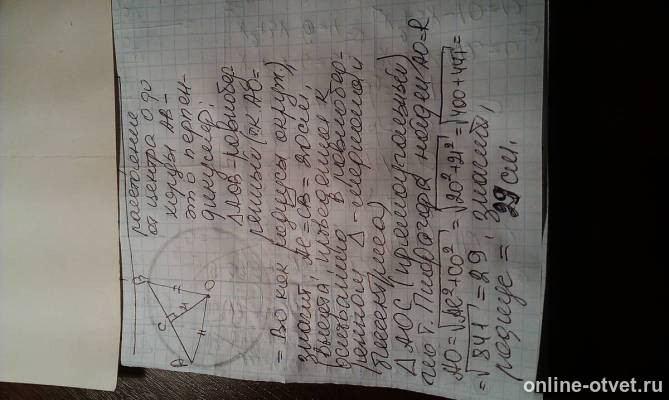 расстояние
от центра О до
хорды АВ -
это перпен-
дикуляр,
△АОВ - равнобед-
ренный (т.к АО =
= ВО как радиусы окруж),
значит, АС = СВ = 20см,
(высота, проведенная к
основанию в равнобед-
ренном △ - медиана и
биссектриса)
△ АОС (прямоугольный)
по т. Пифагора найдем АО = R
АО = √АС² + СО² = √20² + 21² = √400 + 441 =
= √841 = 29, значит,
радиус = 29 см.
А
С
В
О
online-otvet.ru